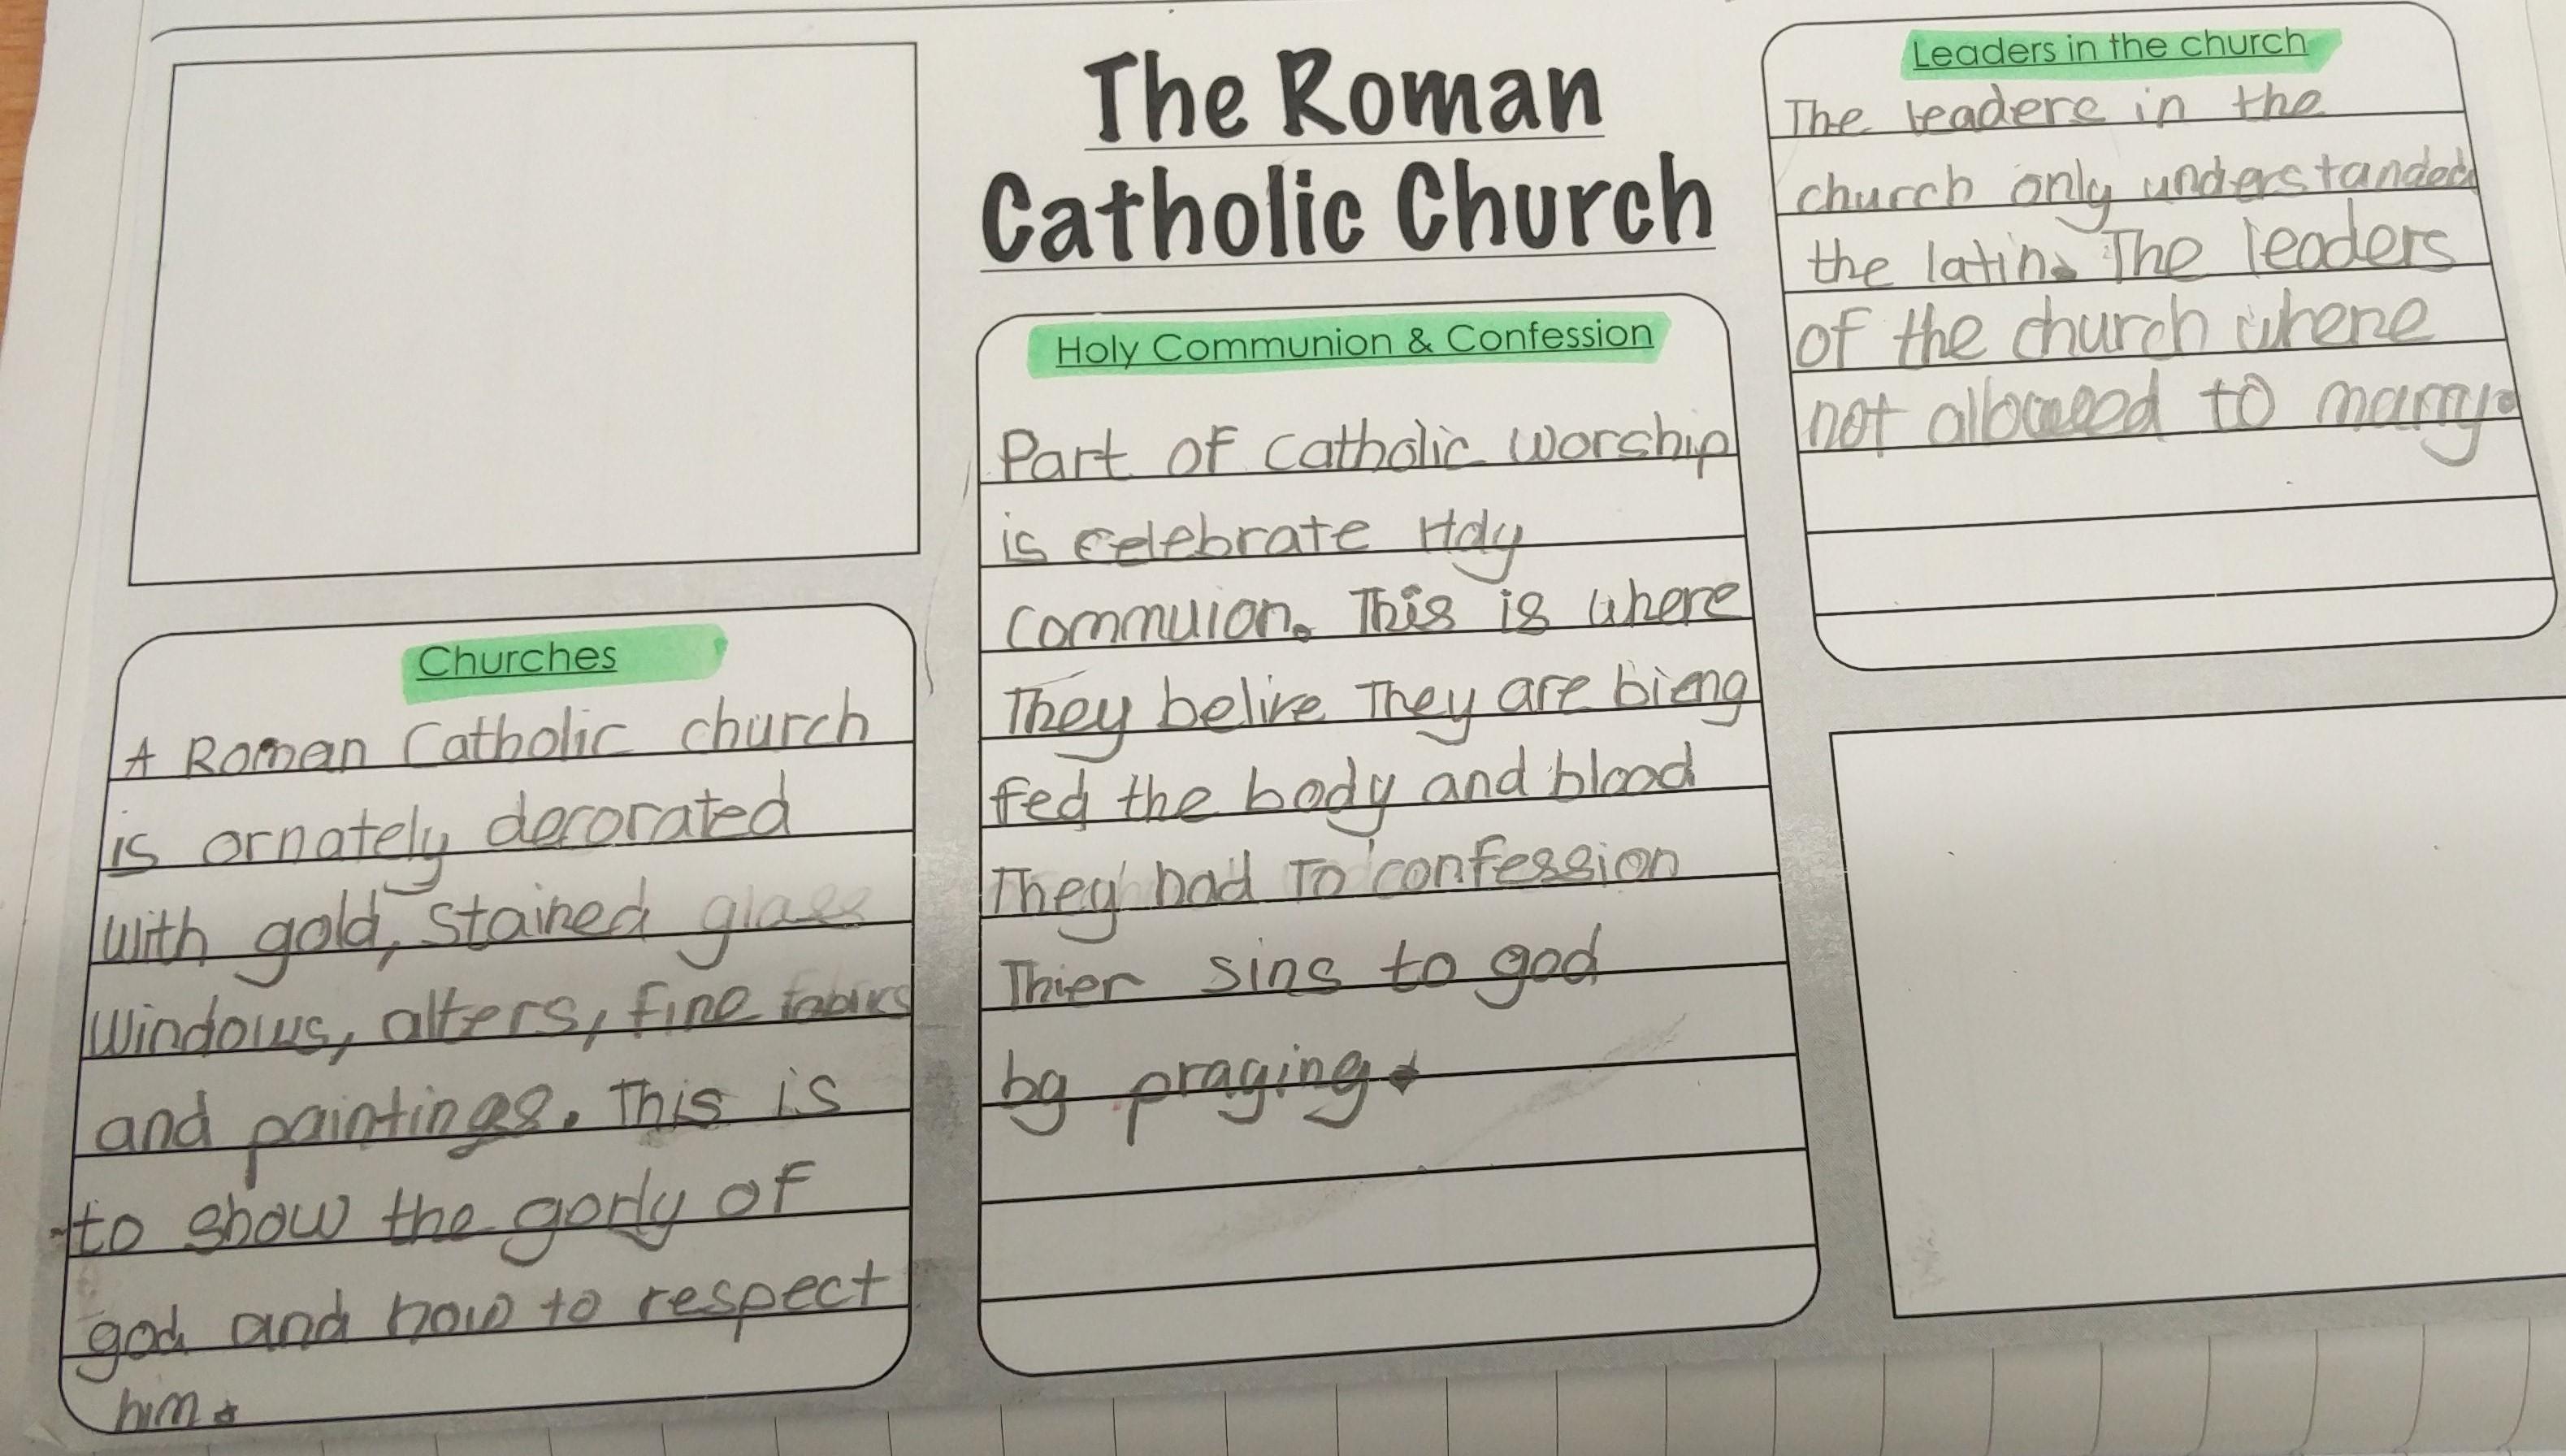 The Roman
Catholic Church
Churches
A Roman Catholic church
is ornately decorated
with gold, stained glass
windows, alters, fine fabircs
and paintings. This is
to show the gorly of
god and how to respect
him.
Holy Communion & Confession
Part of Catholic worship
is celebrate Holy
Commuion. This is where
They belive They are bieng
fed the body and blood
They had To confession
Thier sins to god
by praying.
Leaders in the church
The leaders in the
church only understanded
the latin. The leaders
of the church where
not allowed to marry.